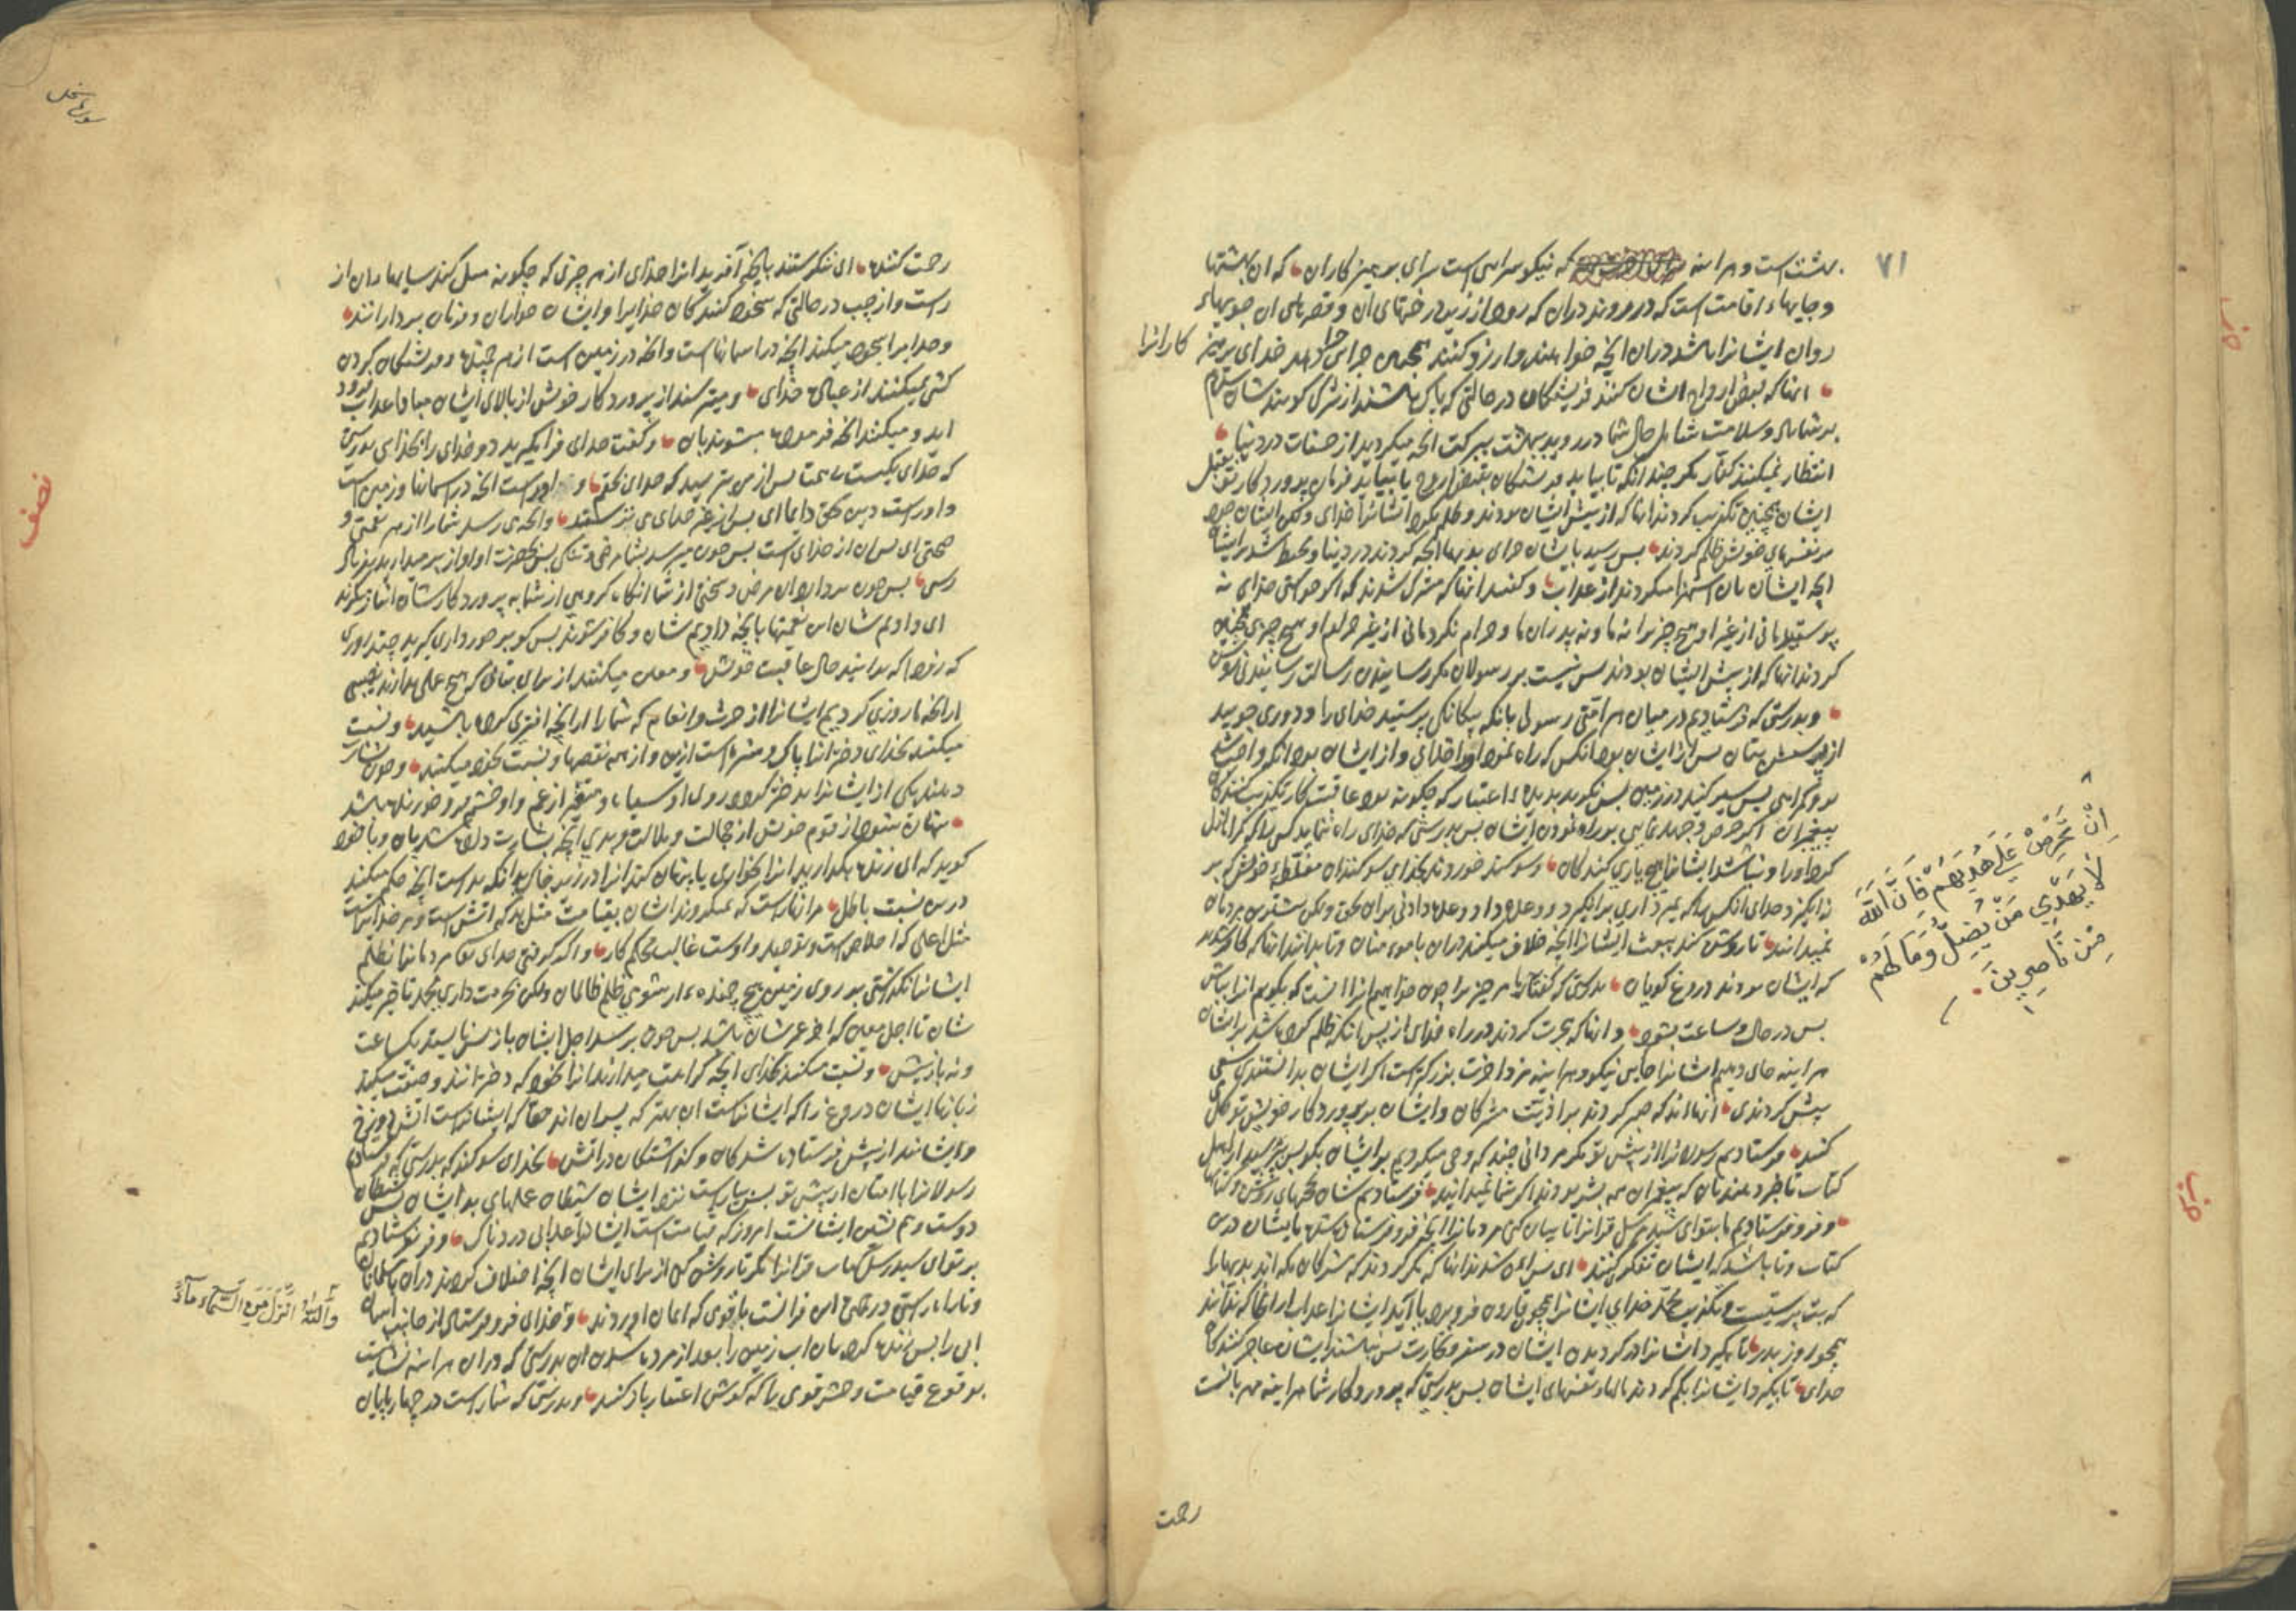 ۷۱
بهشت است و هر اینه که نیکو سرایی است سرای پرهیز کاران که ان بهشتها
و جایهاء اقامت است که در روند دران که رود از زیر درختهای ان و قصرهای ان جویهاء
روان ایشانرا باشد دران انچه خواهند و ارزو کنند همچنین جزای دهد خدای پرهیز
کارانرا
انها که قبض ارواح ایشان کنند فریشتکان در حالتی که پاک باشند از شرک کویند شان سلام
بر شما باد و سلامت شامل حال شما در روید ببهشت ببرکت انچه میکردید از حسنات در دنیا
انتظار نمیکشند کفار مکر چند انکه تا بیاید فرشتکان بقبض روح یا بیاید فرمان پروردکار تو
ایشان همچنین تکذیب کردند انها که از پیش ایشان بودند و ظلم نکرد ایشانرا خدای و لکن ایشان بود
بر نفسهای خویش ظلم کردند پس رسید بایشان جزای بدیها انچه کردند در دنیا و محیط شد بایشان
انچه ایشان بان استهزا میکردند از عذاب و کفتند انها که مشرک شدند که اکر خواستی خدای نه
پرستیدمانی از غیر او هیچ چیز را نه ما و نه پدران ما و حرام نکردمانی از غیر حرام او هیچ چیزی همچنین
کردند انها که از پیش ایشان بودند پس نیست بر رسولان مکر رسانیدن رسالت رسانیدنی روشن
و بدرستی که فرستادیم در میان هر امتی رسولی بانکه یکانکی پرستید خدای را و دوری جویید
از پرستش بتان پس از ایشان بود انکس که راه نمود او را خدای و از ایشان بود انکه واجب شد
برو کمراهی پس سیر کنید در زمین پس بنکرید بدیدهء اعتبار که چکونه بود عاقبت کار تکذیب کنندکان
پیغمبران اکر حرص و جهد نمایی بر راه نمودن ایشان پس بدرستی که خدای راه ننماید کسی را که کمراه
کرد او را و نباشد ایشانرا هیچ یاری کنندکان و سوکند خوردند بخدای سوکندان مغلظهء خویش که بر
نه انکیزد خدای انکس را که بمیرد اری برانکیزد و وعده داد وعده دادنی بران بحق و لکن بیشترین مردمان
نمیدانند تا روشن کند ببعث ایشانرا انچه خلاف میکنند دران با مومنان و تا بدانند انها که کافر شدند
که ایشان بودند دروغ کویان بدرستی که کفتار ما هر چیز را چون خواهیم انرا انست که بکویم انرا بباش
پس در حال و ساعت بشود و انها که هجرت کردند در راه خدای از پس انکه ظلم کرده باشد بر ایشان
هر اینه جای دهیم ایشانرا جایی نیکو و هر اینه مزد اخرت بزرکتر است اکر ایشان بدانستندی سعی
بیش کردندی انها اند که صبر کردند بر اذیت مشرکان و ایشان بر پروردکار خویش توکل
کنند و فرستادیم رسولانرا از پیش تو مکر مردانی چند که وحی میکردیم بر ایشان بکو پس بپرسید از اهل
کتاب تا خبر دهند تان که پیغمبران همه بشر بودند اکر شما نمیدانید فرستادیم شان بحجتهای روشن و کتابها
و فرو فرستادیم ما بتو ای سید رسل قرانرا تا بیان کنی مردمانرا انچه فرو فرستاده شد بایشان درین
کتاب و تا باشد که ایشان تفکر کنند ای پس ایمن شدند انها که مکر کردند که مشرکان مکه اند بدیها را
که بت پرستیست و تکذیب محمد خدای ایشانرا همچو قارون فرو برد یا اید ایشانرا عذاب از انجا که ندانند
همچو روز بدر یا بکیرد ایشانرا در کردیدن ایشان در سفر و تجارت پس نباشند ایشان عاجز کنندکان
خدای یا بکیرد ایشانرا بکم کردن مالها و نفسهای ایشان پس بدرستی که پروردکار شما هر اینه مهربانست
اِنْ تَحْرِصْ عَلٰى هُدٰيهُمْ فَاِنَّ اللّٰهَ
لَا يَهْدِي مَنْ يُضِلُّ وَمَا لَهُمْ
مِنْ نَاصِرِينَ
رحمت
سورة نحل
رحمت کننده ای ننکرستند بانچه آفرید انرا خدای از هر چیزی که چکونه میل کند سایها دران از
راست و از چپ در حالتی که سجود کنندکان خدایرا و ایشان خواران و فرمان بردارانند
و خدایرا سجود میکند انچه در اسمانها است و انچه در زمین است از هر جنبنده و فرشتکان کردن
کشی نمیکنند از عبادت خدای و میترسند از پروردکار خویش از بالای ایشان مبادا عذاب فرود
اید و میکنند انچه فرموده بشوند بان و کفت خدای فرا مکیرید دو خدای را بخدای بدرستی
که خدای یکیست پس از من بترسید که خدای بحقم و اوراست انچه در اسمانها و زمین است
و اوراست دین حق دایما ای پس از غیر خدای می ترسید و انچه می رسد شمارا از هر نعمتی و
صحتی ای پس ان از خدای است پس چون میرسد بشما مرض و تنکی پس بحضرت او اواز بر میدارید بفریاد
رسی پس چون بردارد ان مرض و سختی از شما انکاه کروهی از شما به پروردکارشان انباز میکیرند
ای دادیم شان این نعمتها بانچه دادیم شان و کافر شوند پس کو برخورداری کیرید چند روزی
که زود که بدانید حال عاقبت خویش و معین میکنند از برای بتانی که هیچ علمی ندارند نصیبی
از انچه ما روزی کردیم ایشانرا از حرث و انعام که شما را از انچه افتری کرده باشید و نسبت
میکنند بخدای دختر انرا پاک و منزه است ازین و از همه نقصها و نسبت بخود میکنند و چون بشارت
دهند یکی از ایشانرا بدختر کردد روی او سیاه و متغیر از غم و او خشم فرو خورنده باشد
پنهان شود از قوم خویش از خجالت و ملالت و بدی انچه بشارت داده شد بان و با خود
کوید که ای زنده بکذارید انرا بخواری یا پنهان کند انرا در زیر خاک بدانکه بد است انچه حکم میکنند
درین نسبت باطل مرانهاراست که نمیکروند ایشان بقیامت مثل بد که اتش است و مر خدایراست
مثل اعلی که اخلاص است و توحید و اوست غالب محکم کار و اکر کرفتی خدای تعالی مردمانرا بظلم
ایشانرا نکذاشتی بر روی زمین هیچ جنبنده‌ء از شومی ظلم ظالمان ولکن بحرمت داری محمد تاخیر میکند
شان تا اجل معین که اخر عمر شان باشد پس چون برسد اجل ایشان باز پس نایستد یکساعت
و نه باز پیش و نسبت میکنند بخدای انچه کراهت میدارند انرا بخود که دخترانند و صفت میکند
زبانها ایشان دروغ را که ایشانراست ان بهتر که پسران اند حقا که ایشانراست اتش دوزخ
و ایشانند از پیش فرستاده شدکان و کذاشتکان در اتش بخدای سوکند که بدرستی که فرستادیم
رسولانرا با امتان از پیش تو پس بیاراست نزد ایشان شیطان عملهای بد ایشان پس شیطان
دوست و هم نشین ایشانست امروز که قیامت است ایشانرا عذابی دردناک و فرو نفرستادیم
بر تو ای سید رسل کتاب قرانرا مکر تا روشن کنی از برای ایشان انچه اختلاف کردند دران
و تا راه راستی در حق این قرانست با قومی که ایمان اوردند و خدای فرو فرستاد از جانب اسمان
ابی را پس زنده کرد بان اب زمین را بعد از مردن ان بدرستی که دران هر اینه نشانیست
بوقوع قیامت و حشر قومی را که کوش اعتبار باز کنند و بدرستی که شماراست در چهار پایان
وَاللّٰهُ اَنْزَلَ مِنَ السَّمَاءِ مَاءً
نصف